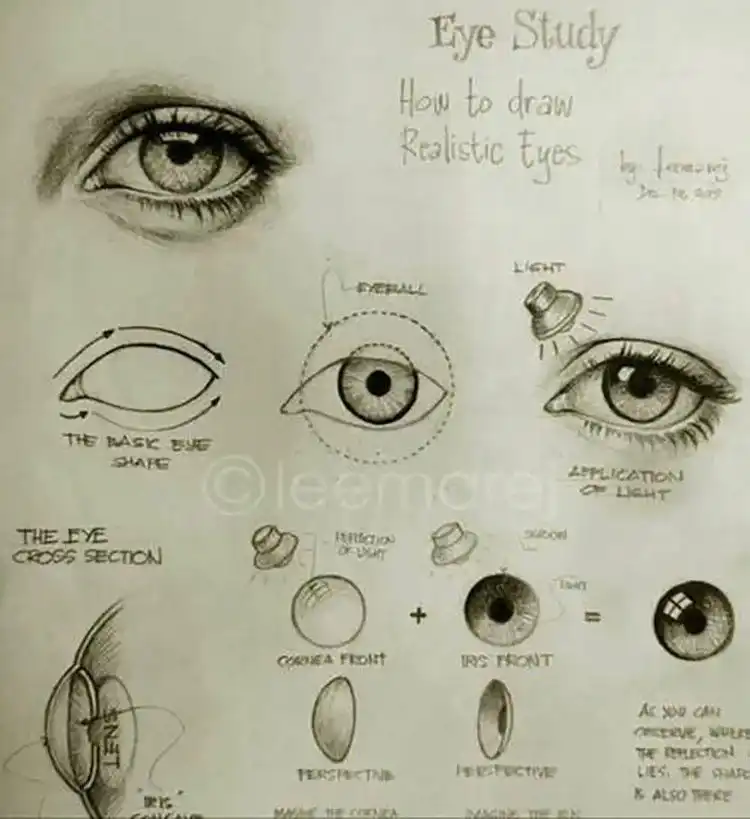 Eye Study
How to draw
Realistic Eyes
by: leemaraj
LIGHT
EYEBALL
THE BASIC EYE
SHAPE
APPLICATION
OF LIGHT
©leemaraj
THE EYE
CROSS SECTION
REFLECTION
OF LIGHT
SHADOW
LIGHT
+
=
CORNEA FRONT
IRIS FRONT
LENS
PERSPECTIVE
PERSPECTIVE
AS YOU CAN
OBSERVE, WHERE
THE REFLECTION
LIES. THE SHAD
IS ALSO THERE
"IRIS"
CONCAVE
IMAGINE THE CORNEA
IMAGINE THE IRIS